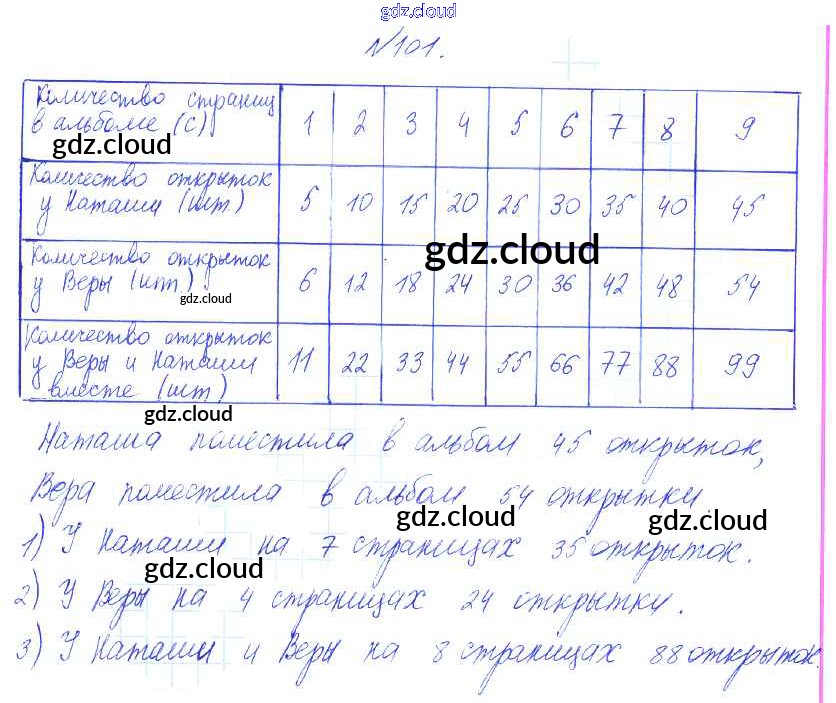 gdz.cloud
№101.
Количество страниц
в альбоме (с) 1 2 3 4 5 6 7 8 9
gdz.cloud
Количество открыток
у Наташи (шт.) 5 10 15 20 25 30 35 40 45
gdz.cloud
Количество открыток
у Веры (шт.) 6 12 18 24 30 36 42 48 54
gdz.cloud
Количество открыток
у Веры и Наташи 11 22 33 44 55 66 77 88 99
вместе (шт)
gdz.cloud
Наташа поместила в альбом 45 открыток,
Вера поместила в альбом 54 открытки.
gdz.cloud gdz.cloud
1) У Наташи на 7 страницах 35 открыток.
gdz.cloud
2) У Веры на 4 страницах 24 открытки.
3) У Наташи и Веры на 8 страницах 88 открыток.